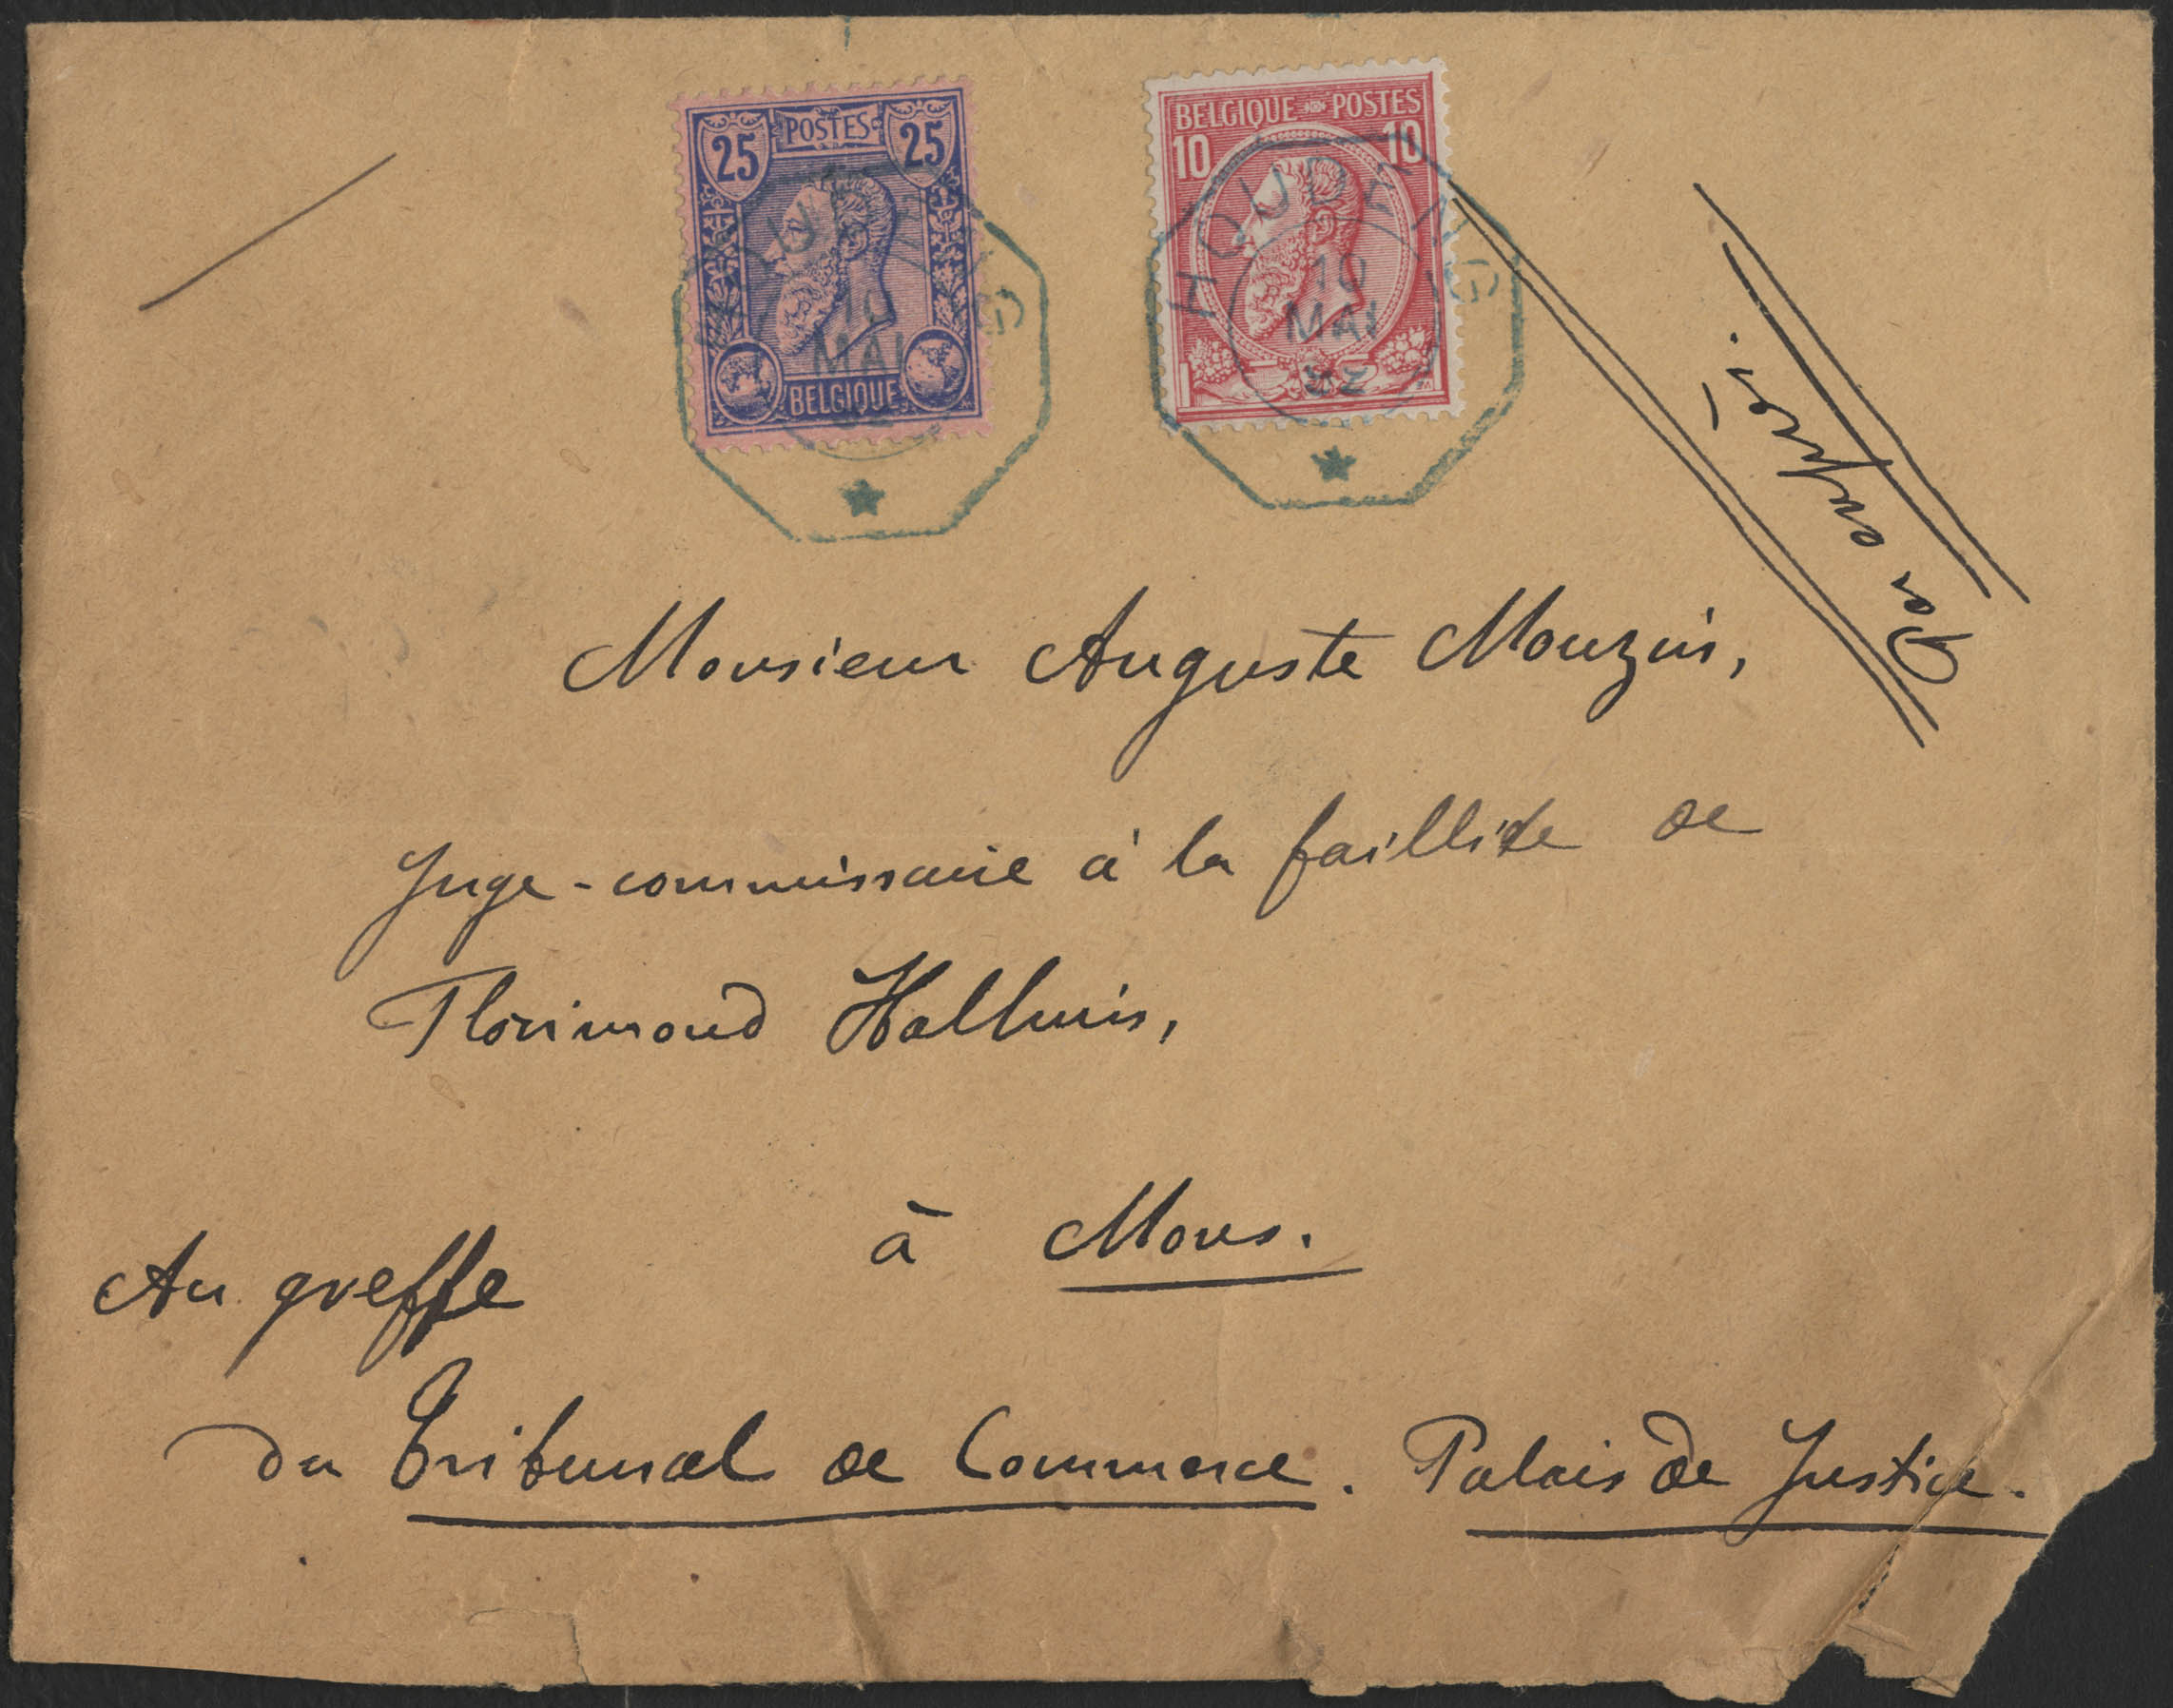 25 POSTES 25
BELGIQUE
10
MAI
BELGIQUE POSTES
10 10
HOUDENG
10
MAI
92
Par exprès.
Monsieur Auguste Mouzin,
Juge-commissaire à la faillite de
Florimond Halluin,
à Mons.
Au greffe
du Tribunal de Commerce. Palais de Justice.